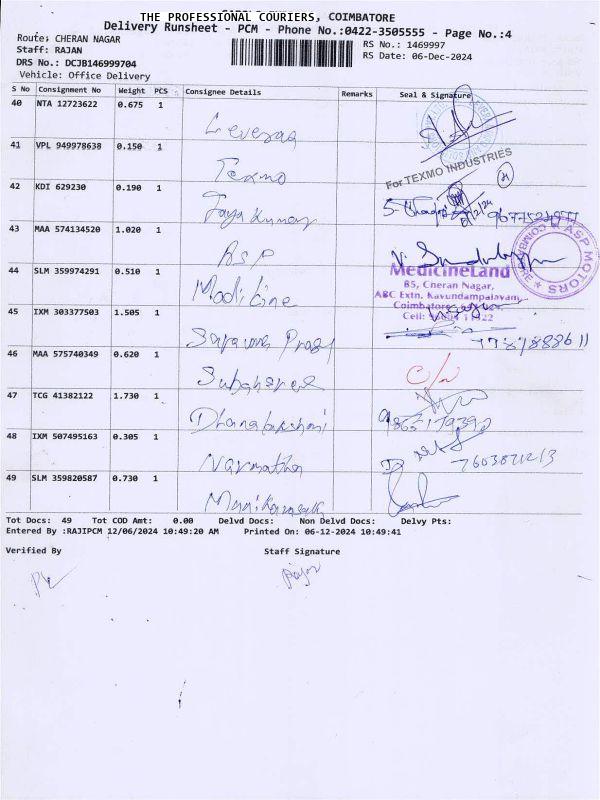 THE PROFESSIONAL COURIERS, COIMBATORE
Delivery Runsheet - PCM - Phone No.:0422-3505555 - Page No.:4
Route: CHERAN NAGAR
RS No.: 1469997
Staff: RAJAN
RS Date: 06-Dec-2024
DRS No.: DCJB146999704
Vehicle: Office Delivery
S No Consignment No Weight PCS Consignee Details Remarks Seal & Signature
40 NTA 12723622 0.675 1
41 VPL 949978638 0.150 1 Texmo
For TEXMO INDUSTRIES
42 KDI 629230 0.190 1 Jaya Kumar
43 MAA 574134520 1.020 1 ASP
ASP MOTORS
COIMBATORE
44 SLM 359974291 0.510 1 Medicine
MedicineLand
85, Cheran Nagar,
ABC Extn. Kavundampalayam,
Coimbatore
Cell:
45 IXM 303377503 1.505 1
46 MAA 575740349 0.620 1
47 TCG 41382122 1.730 1 Dhanalakshmi
48 IXM 507495163 0.305 1 Narmatha
49 SLM 359820587 0.730 1
Tot Docs: 49 Tot COD Amt: 0.00 Delvd Docs: Non Delvd Docs: Delvy Pts:
Entered By :RAJIPCM 12/06/2024 10:49:20 AM Printed On: 06-12-2024 10:49:41
Verified By Staff Signature